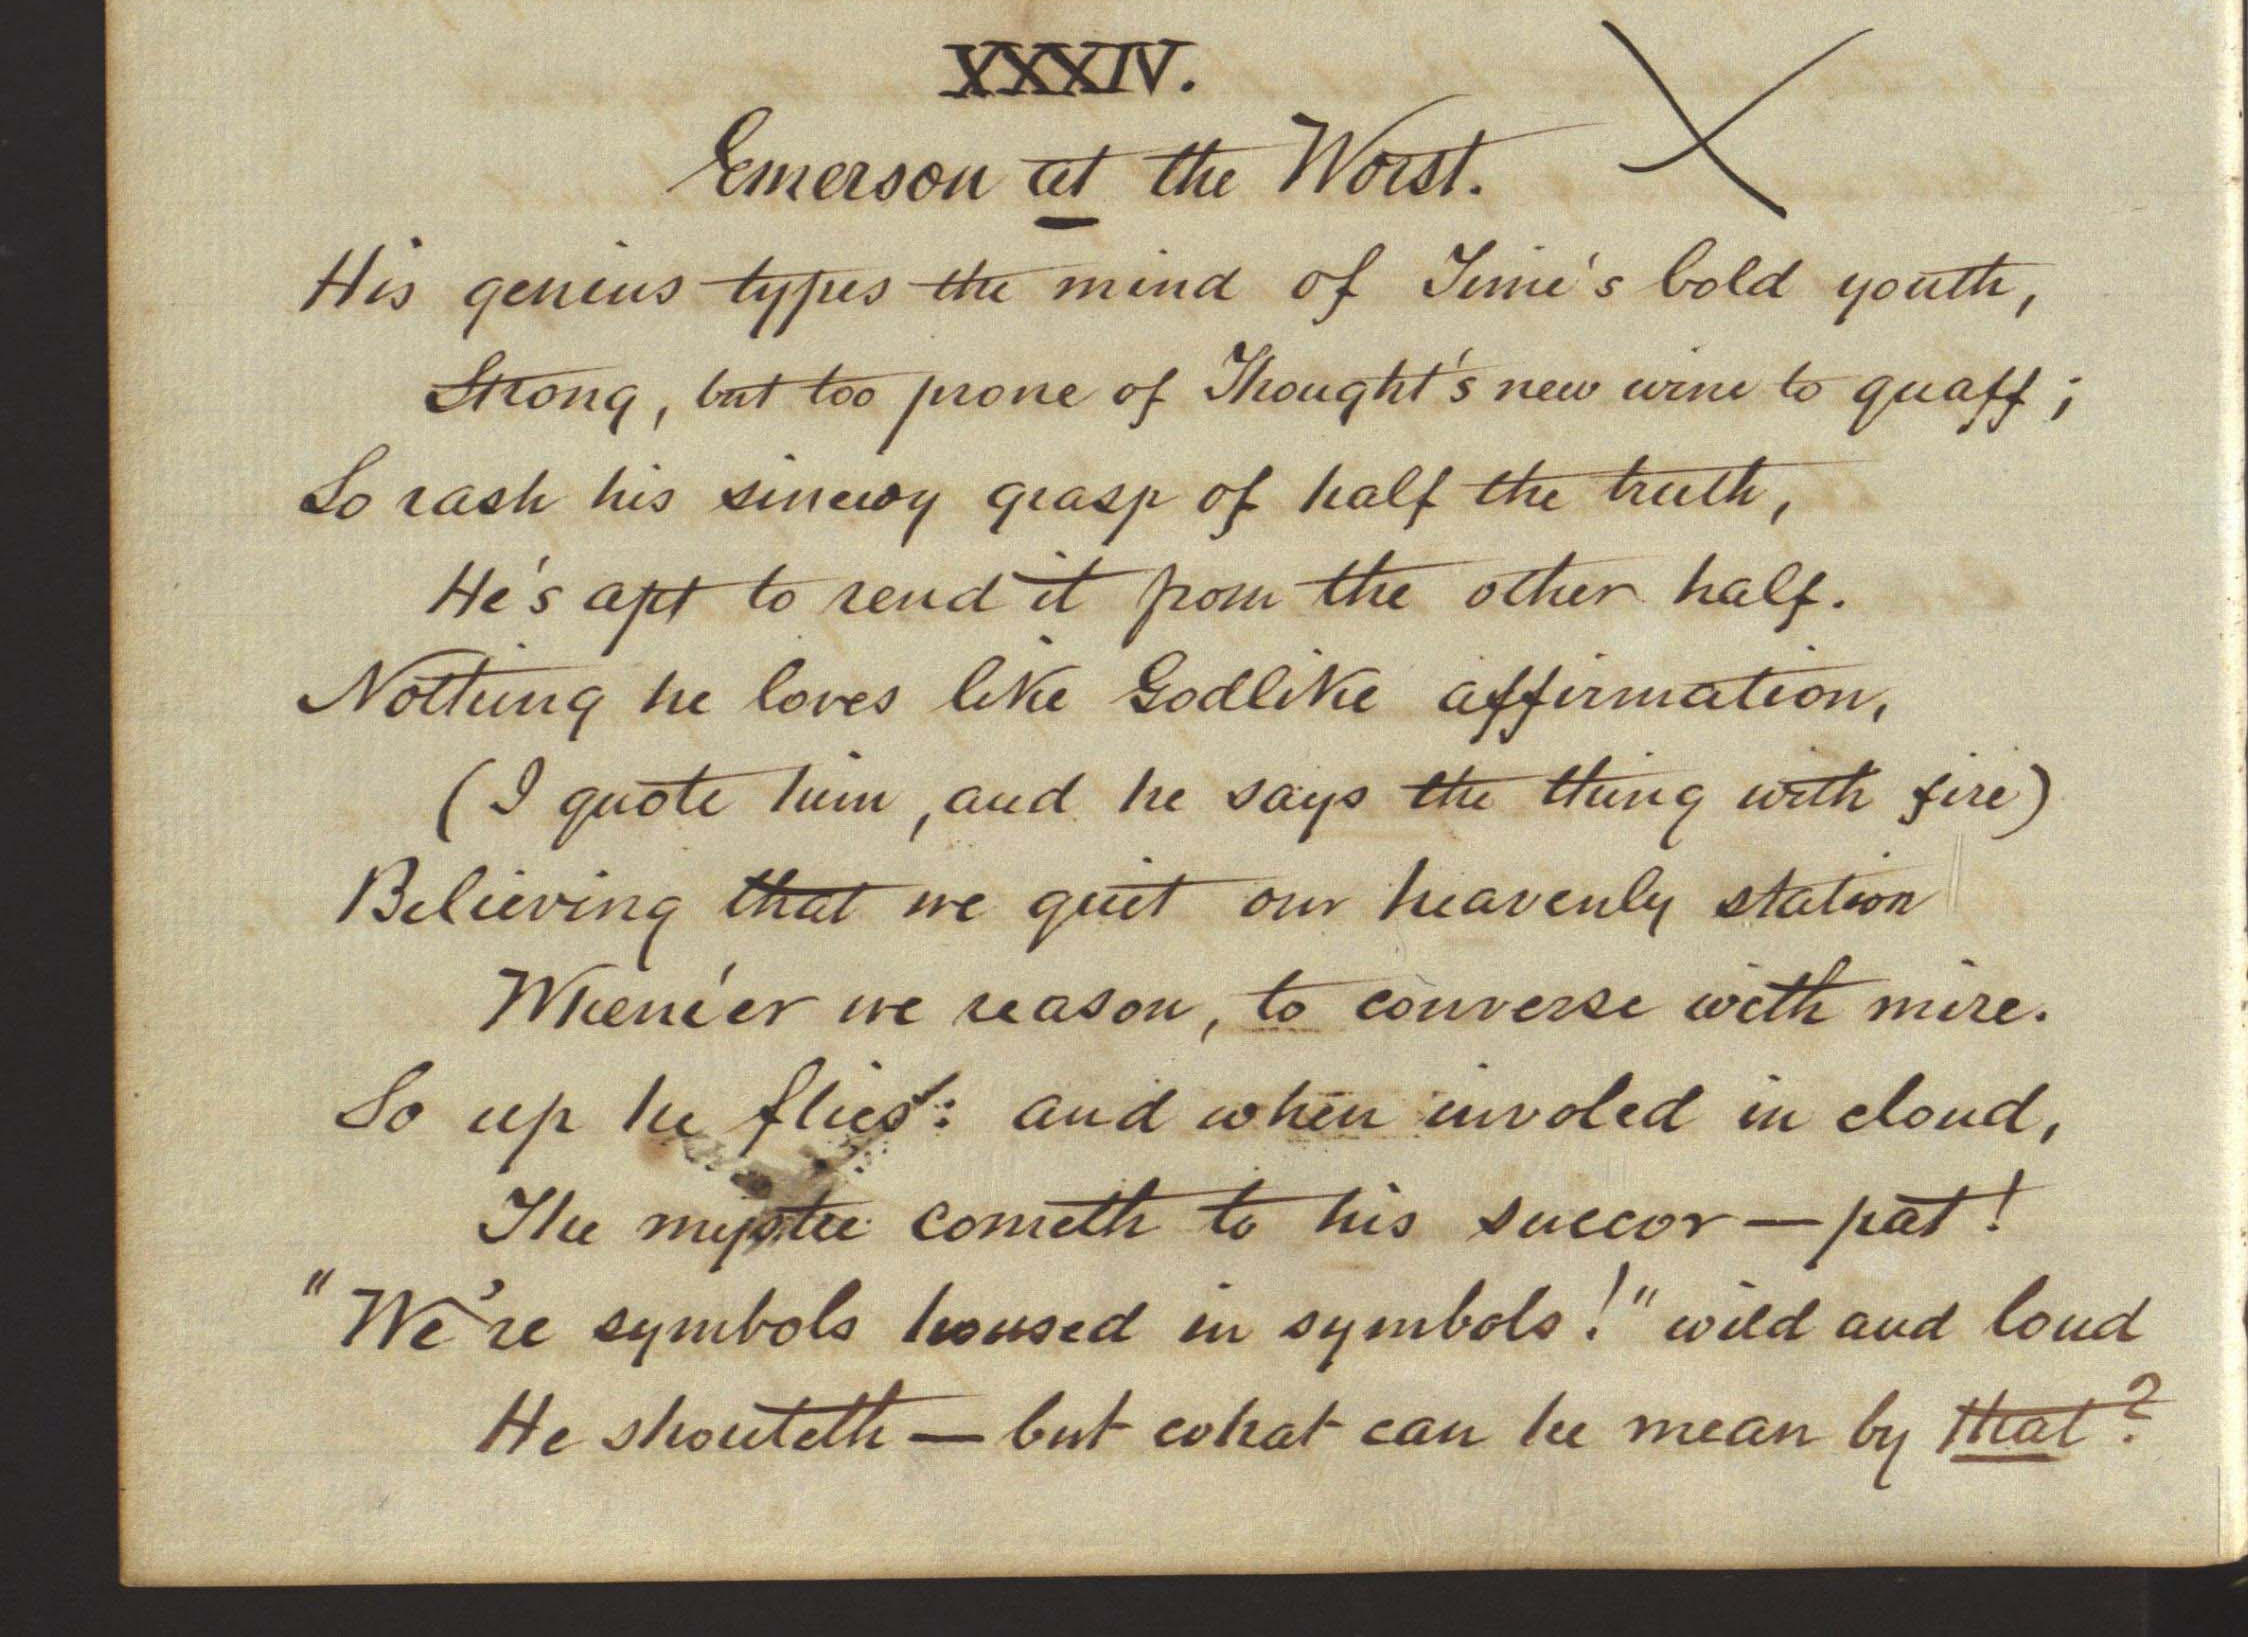 XXXIV.
Emerson at the Worst.
His genius types the mind of Time's bold youth,
Strong, but too prone of Thought's new wine to quaff;
So rash his sinewy grasp of half the truth,
He's apt to rend it from the other half.
Nothing he loves like Godlike affirmation,
(I quote him, and he says the thing with fire)
Believing that we quit our heavenly station
Whene'er we reason, to converse with mire.
So up he flies: and when involed in cloud,
The mystic cometh to his succor — pat!
"We're symbols housed in symbols!" wild and loud
He shouteth — but what can he mean by that?